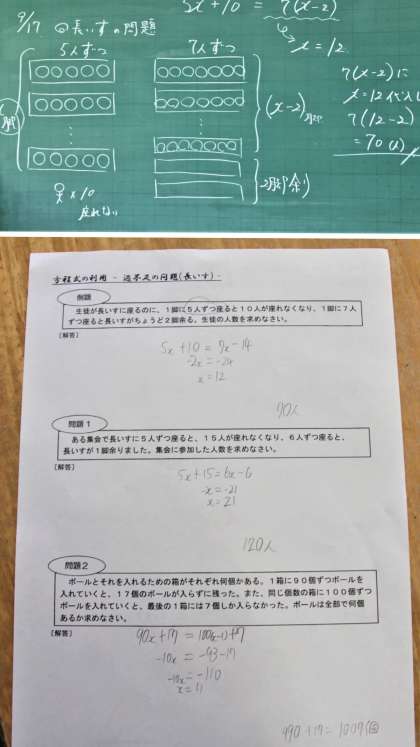 5x+10 = 7(x-2)
9/17 ◎長いすの問題
x=12
5人ずつ
7人ずつ
7(x-2)に
x=12代入し
7(12-2)
=70(人)
(x-2)脚
2脚余り
x脚
×10
座れない
方程式の利用 - 過不足の問題(長いす) -
例題
生徒が長いすに座るのに、1脚に5人ずつ座ると10人が座れなくなり、1脚に7人
ずつ座ると長いすがちょうど2脚余る。生徒の人数を求めなさい。
[解答]
5x+10=7x-14
-2x=-24
x=12
70人
問題1
ある集会で長いすに5人ずつ座ると、15人が座れなくなり、6人ずつ座ると、
長いすが1脚余りました。集会に参加した人数を求めなさい。
[解答]
5x+15=6x-6
-x=-21
x=21
120人
問題2
ボールとそれを入れるための箱がそれぞれ何個かある。1箱に90個ずつボールを
入れていくと、17個のボールが入らずに残った。また、同じ個数の箱に100個ずつ
ボールを入れていくと、最後の1箱には7個しか入らなかった。ボールは全部で何個
あるか求めなさい。
[解答]
90x+17=100(x-1)+7
-10x=-93-17
-10x=-110
x=11
990+17=1007(個)